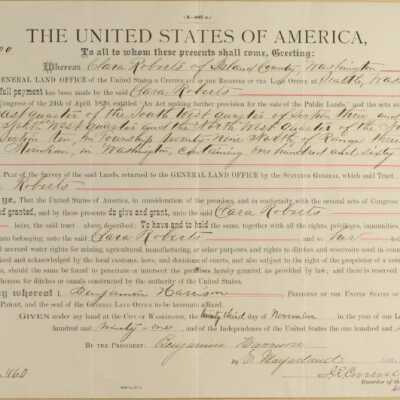 THE UNITED STATES OF AMERICA,
To all to whom these presents shall come, Greeting:
Whereas Clara Roberts of Island County, Washington
GENERAL LAND OFFICE of the United States a CERTIFICATE OF THE REGISTER OF THE LAND OFFICE AT Seattle, Wash
full payment has been made by the said Clara Roberts
Congress of the 24th of April, 1820, entitled "An Act making further provision for the sale of the Public Lands," and the acts su
east quarter of the South West quarter of section three and
West quarter and the North West quarter of the
Section ten in township twenty nine North of Range three
Meridian in Washington, containing one hundred and sixty
PLAT of the Survey of the said Lands, returned to the GENERAL LAND OFFICE by the SURVEYOR GENERAL, which said TRACT
Roberts
ye, That the United States of America, in consideration of the premises, and in conformity with the several acts of Congress
nd granted, and by these presents do give and grant, unto the said Clara Roberts
heirs, the said tract above described; To have and to hold the same, together with all the rights, privileges, immunities,
nto belonging, unto the said Clara Roberts and to her
d accrued water rights for mining, agricultural, manufacturing, or other purposes, and rights to ditches and reservoirs used in conn
ized and acknowledged by the local customs, laws, and decisions of courts, and also subject to the right of the proprietor of a vein
, should the same be found to penetrate or intersect the premises hereby granted, as provided by law; and there is reserved
hereon for ditches or canals constructed by the authority of the United States.
y whereof I, Benjamin Harrison PRESIDENT OF THE UNITED STATES OF
PATENT, and the seal of the GENERAL LAND OFFICE to be hereunto affixed.
GIVEN under my hand at the CITY OF WASHINGTON, the twenty third day of November in the year of our Lo
hundred and ninety-one, and of the Independence of the United States the one hundred and
BY THE PRESIDENT: Benjamin Harrison
By
460